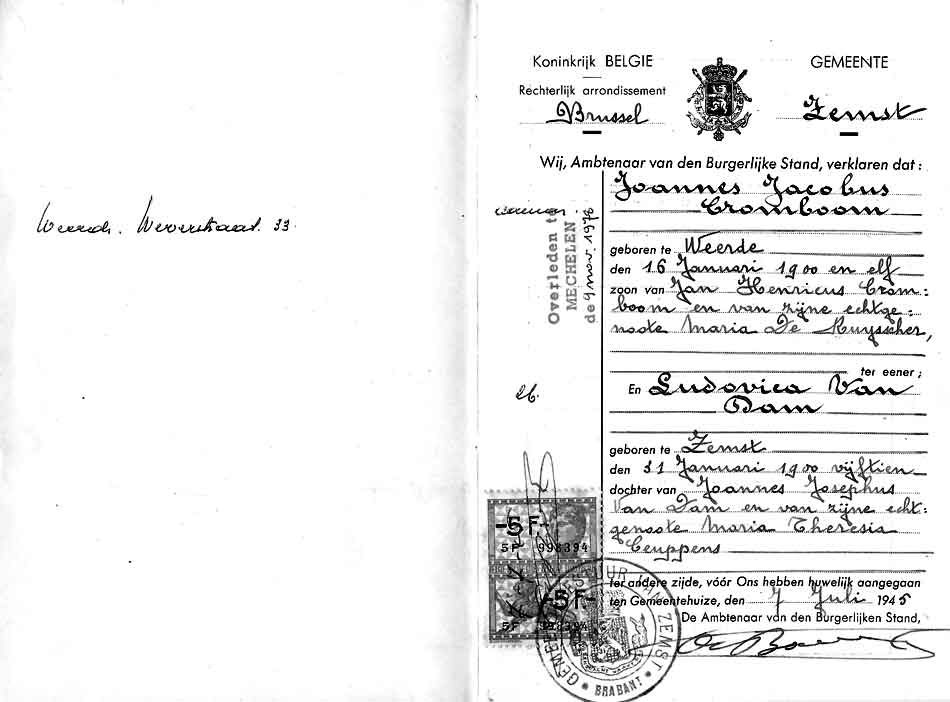 Weerde. Weverstraat. 33.
Koninkrijk BELGIE
Rechterlijk arrondissement
Brussel
GEMEENTE
Zemst
Wij, Ambtenaar van den Burgerlijke Stand, verklaren dat :
Joannes Jacobus
Cromboom
geboren te Weerde
den 16 Januari 1900 en elf
zoon van Jan Henricus Crom=
boom en van zijne echtge=
noote Maria De Ruysscher,
ter eener ;
En Ludovica Van
Dam
geboren te Zemst
den 31 Januari 1900 vijftien
dochter van Joannes Josephus
Van Dam en van zijne echt=
genoote Maria Theresia
Ceuppens
ter andere zijde, vóór Ons hebben huwelijk aangegaan
ten Gemeentehuize, den 7 Juli 1945
De Ambtenaar van den Burgerlijken Stand,
Overleden te
MECHELEN
de 9 nov. 1978
-5 F-
5F 998394
-5 F-
5F 998394
GEMEENTEBESTUUR VAN ZEMST
* BRABANT *